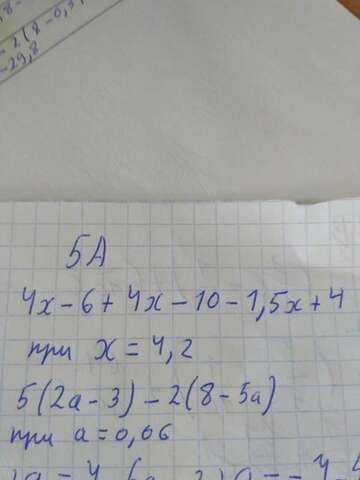 - 2(8-0,3
-29,8
5А
4x-6+4x-10-1,5x+4
при x=4,2
5(2a-3)-2(8-5a)
при a=0,06